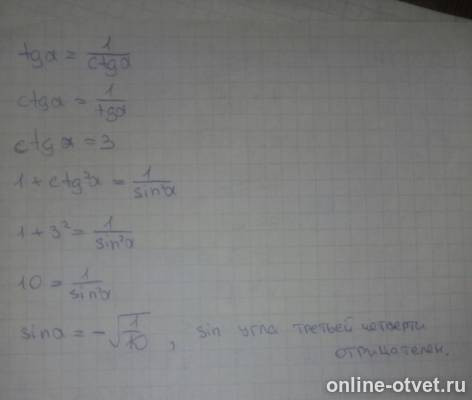 tgα = 1/ctgα
ctgα = 1/tgα
ctgα = 3
1 + ctg²α = 1/sin²α
1 + 3² = 1/sin²α
10 = 1/sin²α
sinα = -√(1/10) , sin угла третьей четверти
отрицателен.
online-otvet.ru